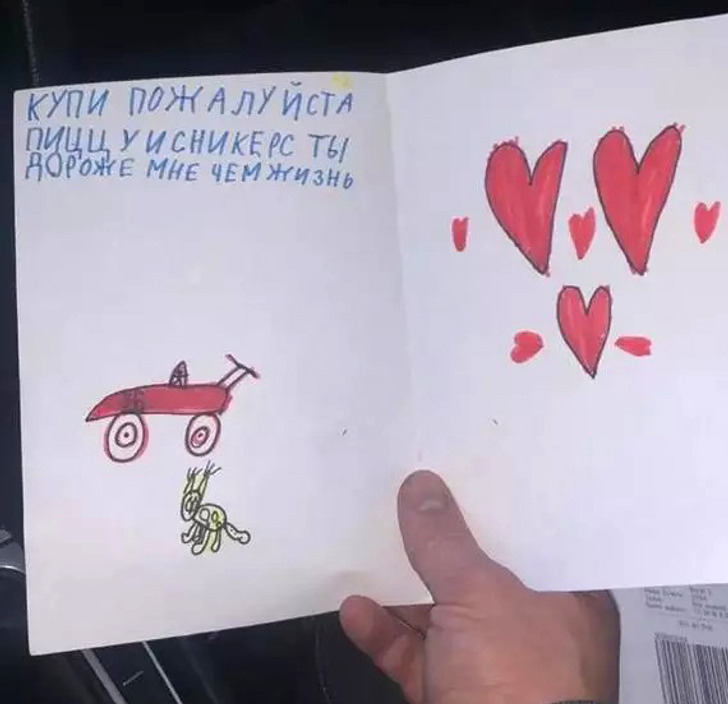 КУПИ ПОЖАЛУЙСТА
ПИЦЦУ И СНИКЕРС ТЫ
ДОРОЖЕ МНЕ ЧЕМ ЖИЗНЬ